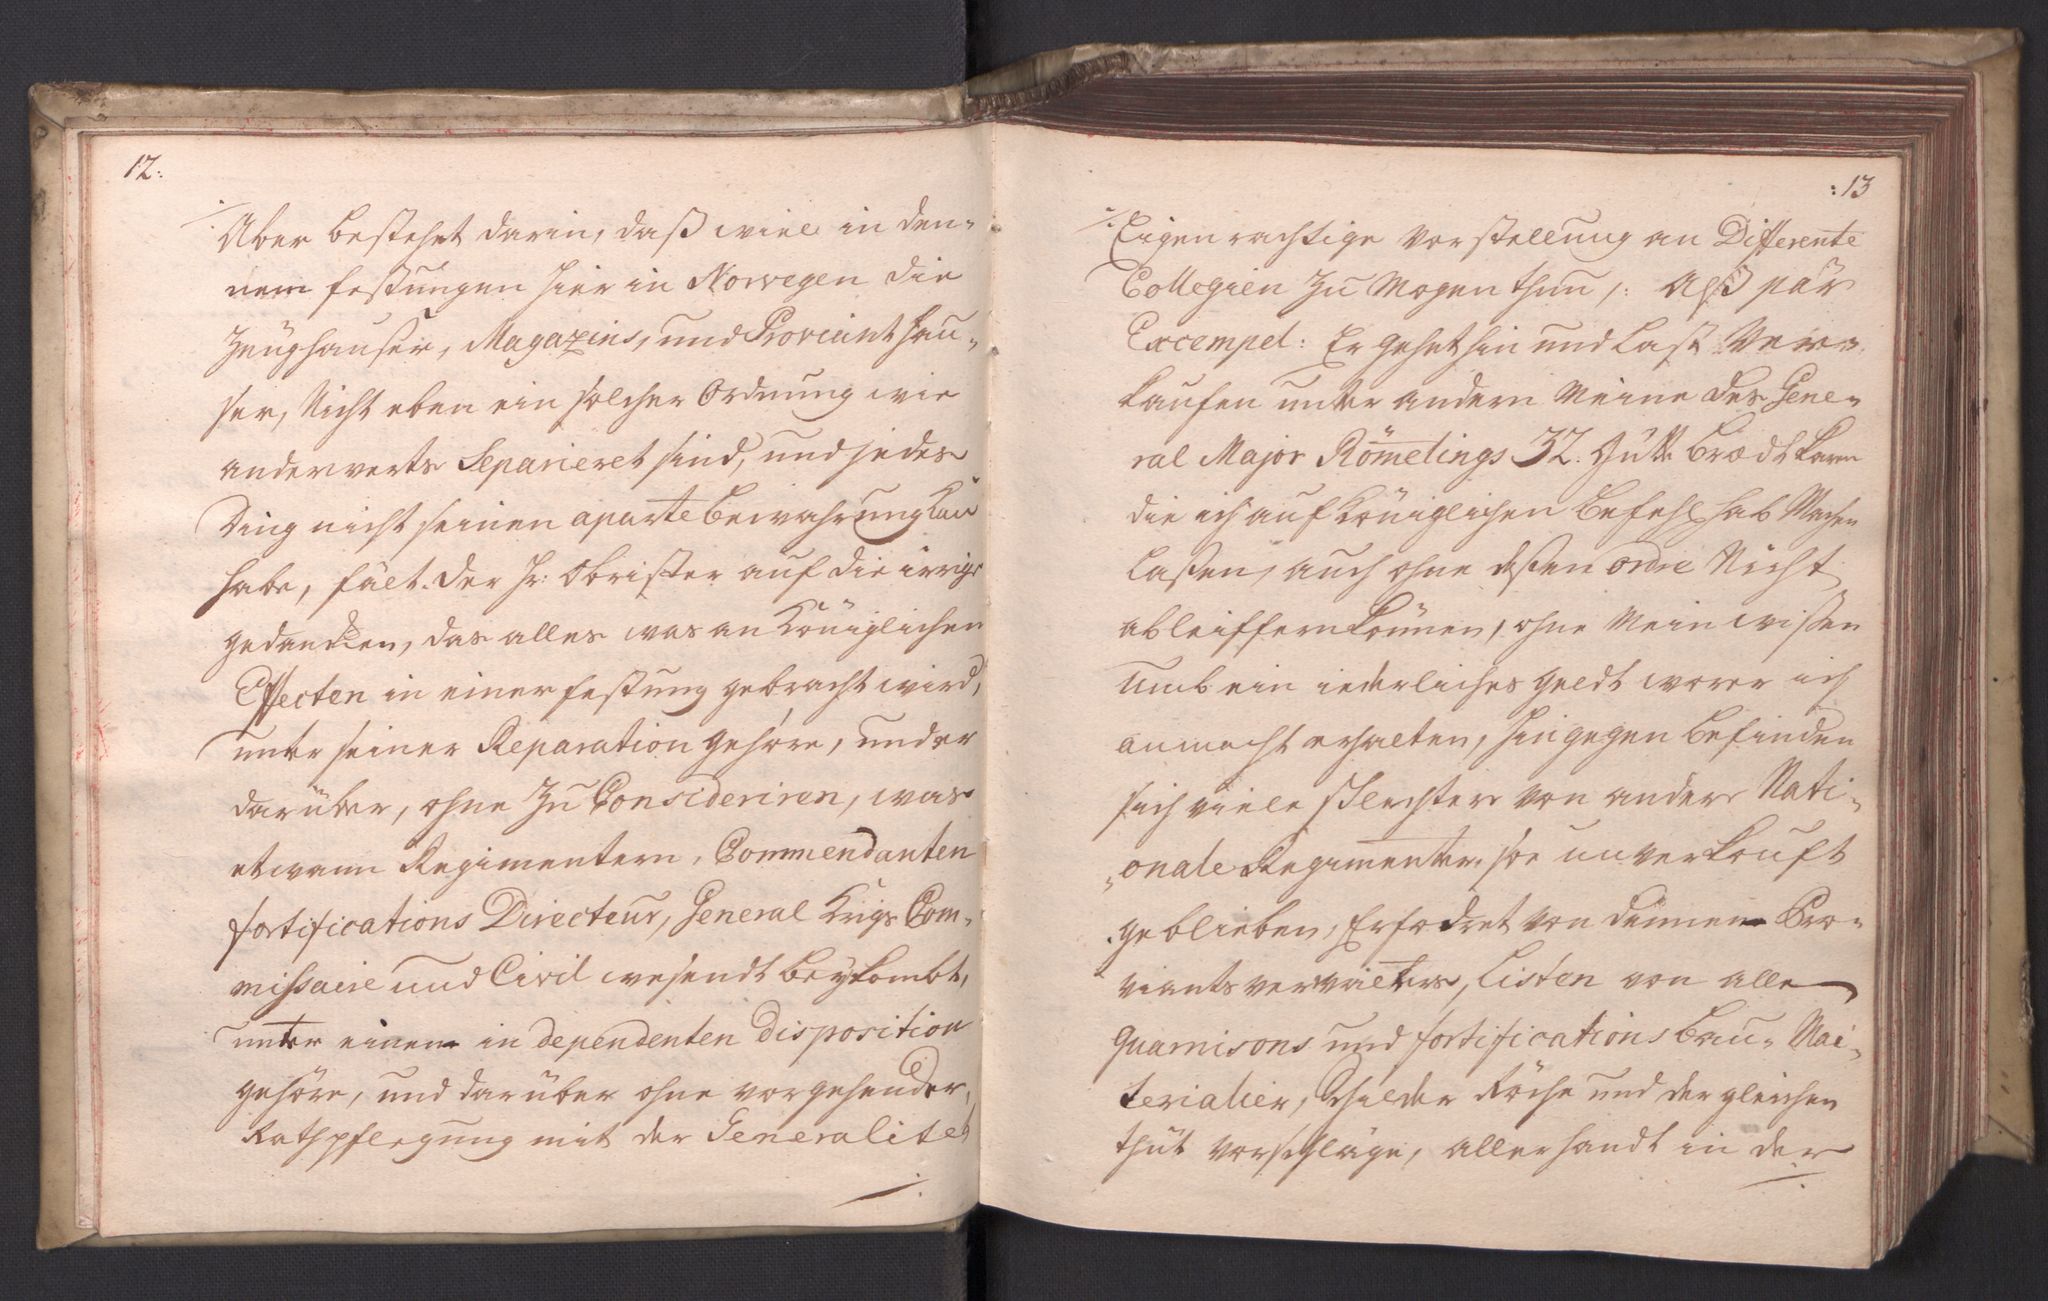 12.
Aber bestehet darin, daß wiel in den-
nem festungen hier in Norwegen die
Zeughauser, Magazins, und Proviant hau-
ser, Nicht eben ein solcher Ordnung wie
anderverts Separieret sind, und jedes
Ding nicht seinen aparte bewahrung
habe, fält der Hr: Obrister auf die irrige
gedancken, das alles was an Königlichen
Effecten in einer festung gebracht wird,
unter seiner Reparation gehöre, und er
darüber, ohne zu Consideriren, was
etwann Regimentern, Commendanten
fortifications Directeur, General Krigs Com-
missaire und Civil wesendt beykombt,
unter einem in dependenten disposition
gehöre, und darüber ohne vorgehender
Rathpflegung mit der Generalitet
:13
Eigenrachtige vorstellung an Differente
Collegien zu Mogen thun, : Alß pär
Excempel: Er gehet hin und Last Ver-
kaufen unter andern Meine des Gene-
ral Major Römelings 32. Gütte
die ich auf Königlichen befehl hab Machen
Laßen, auch ohne deßen ordre Nicht
ableiffern können, ohne Mein wißen
Umb ein liederliches geldt
erhalten, hingegen befinden
sich viele schlechter von ander Nati-
-onale Regimenter, so unverkouft
geblieben, Erfodret von dennen Pro-
viants verwalters, Listen von alle
Guarnisons und fortifications bau- Mai-
terialier, Schilder Röcke und der gleichen
thüt vorschläge, allerhandt in der